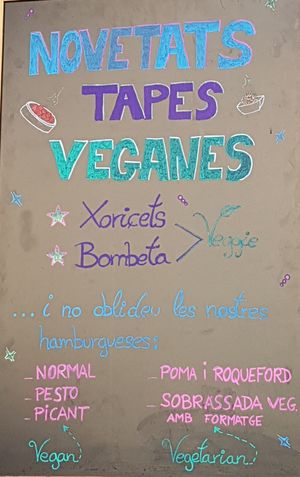 NOVETATS
TAPES
VEGANES
Xoricets
Bombeta
Veggie
...i no oblideu les nostres
hamburgueses:
_NORMAL
_PESTO
_PICANT
Vegan
_POMA i ROQUEFORD
_SOBRASSADA VEG.
AMB FORMATGE
Vegetarian